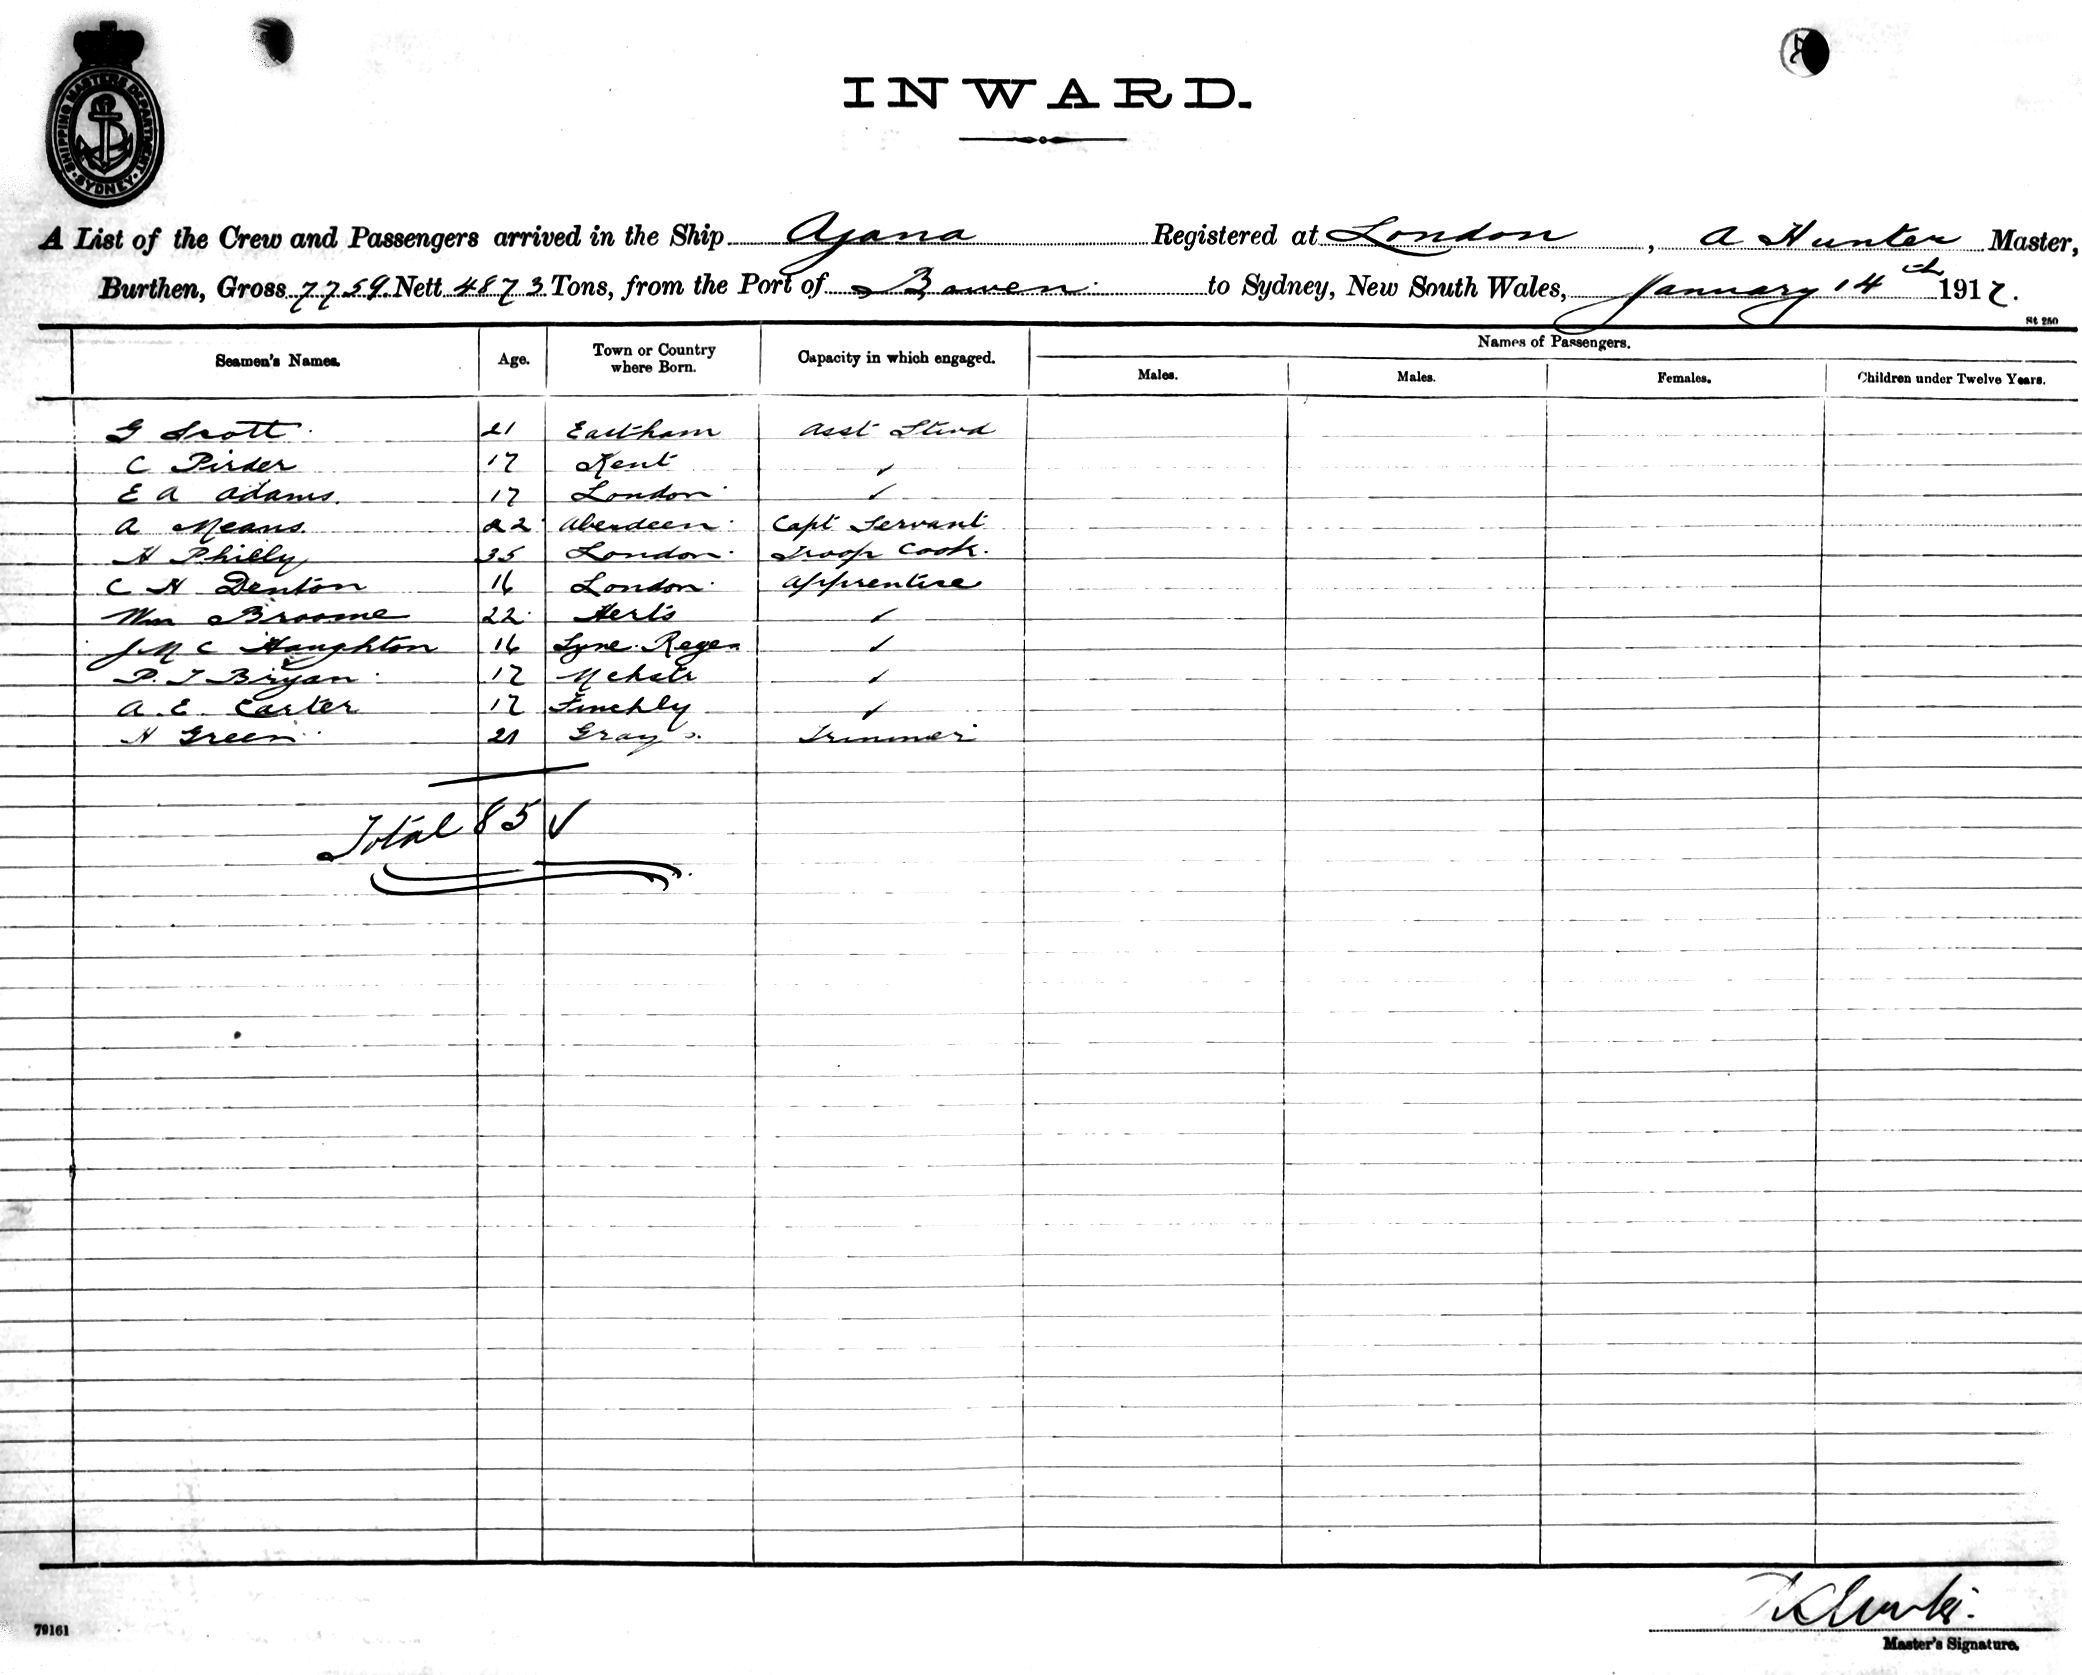 SHIPPING MASTERS DEPARTMENT
SYDNEY
INWARD.
A List of the Crew and Passengers arrived in the Ship Ajana Registered at London, A Hunter Master,
Burthen, Gross 7759 Nett 4873 Tons, from the Port of Bowen to Sydney, New South Wales, January 14th 1917.
St 250
Seamen's Names. Age. Town or Country where Born. Capacity in which engaged. Names of Passengers.
Males. Males. Females. Children under Twelve Years.
G Scott 21 Eastham Asst Stwd
C Pirder 17 Kent ✓
E A Adams. 17 London ✓
A Means. 22 Aberdeen Capt Servant
H Philly 35 London Troop Cook.
C H Denton 16 London Apprentice
Wm Broome 22 Herts ✓
J M C Haughton 16 Lyne Reges ✓
P. J Bryan 17 ✓
A. E. Carter 17 Finchly ✓
H Green 21 Grays. Trimmer
Total 85 ✓
79161
Master's Signature.